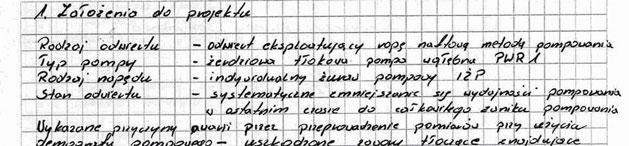 1. Założenia do projektu
Rodzaj odwiertu - odwiert eksploatujący ropę naftową metodą pompowania
Typ pompy - żerdziowa tłokowa pompa wgłębna PWR 1
Rodzaj napędu - indywidualny żuraw pompowy IŻP
Stan odwiertu - systematyczne zmniejszanie się wydajności pompowania
w ostatnim czasie do całkowitego zaniku pompowania
Wykazane przyczyny awarii przez przeprowadzenie pomiarów przy użyciu
pompowego - uszkodzone zawory tłoczące znajdujące